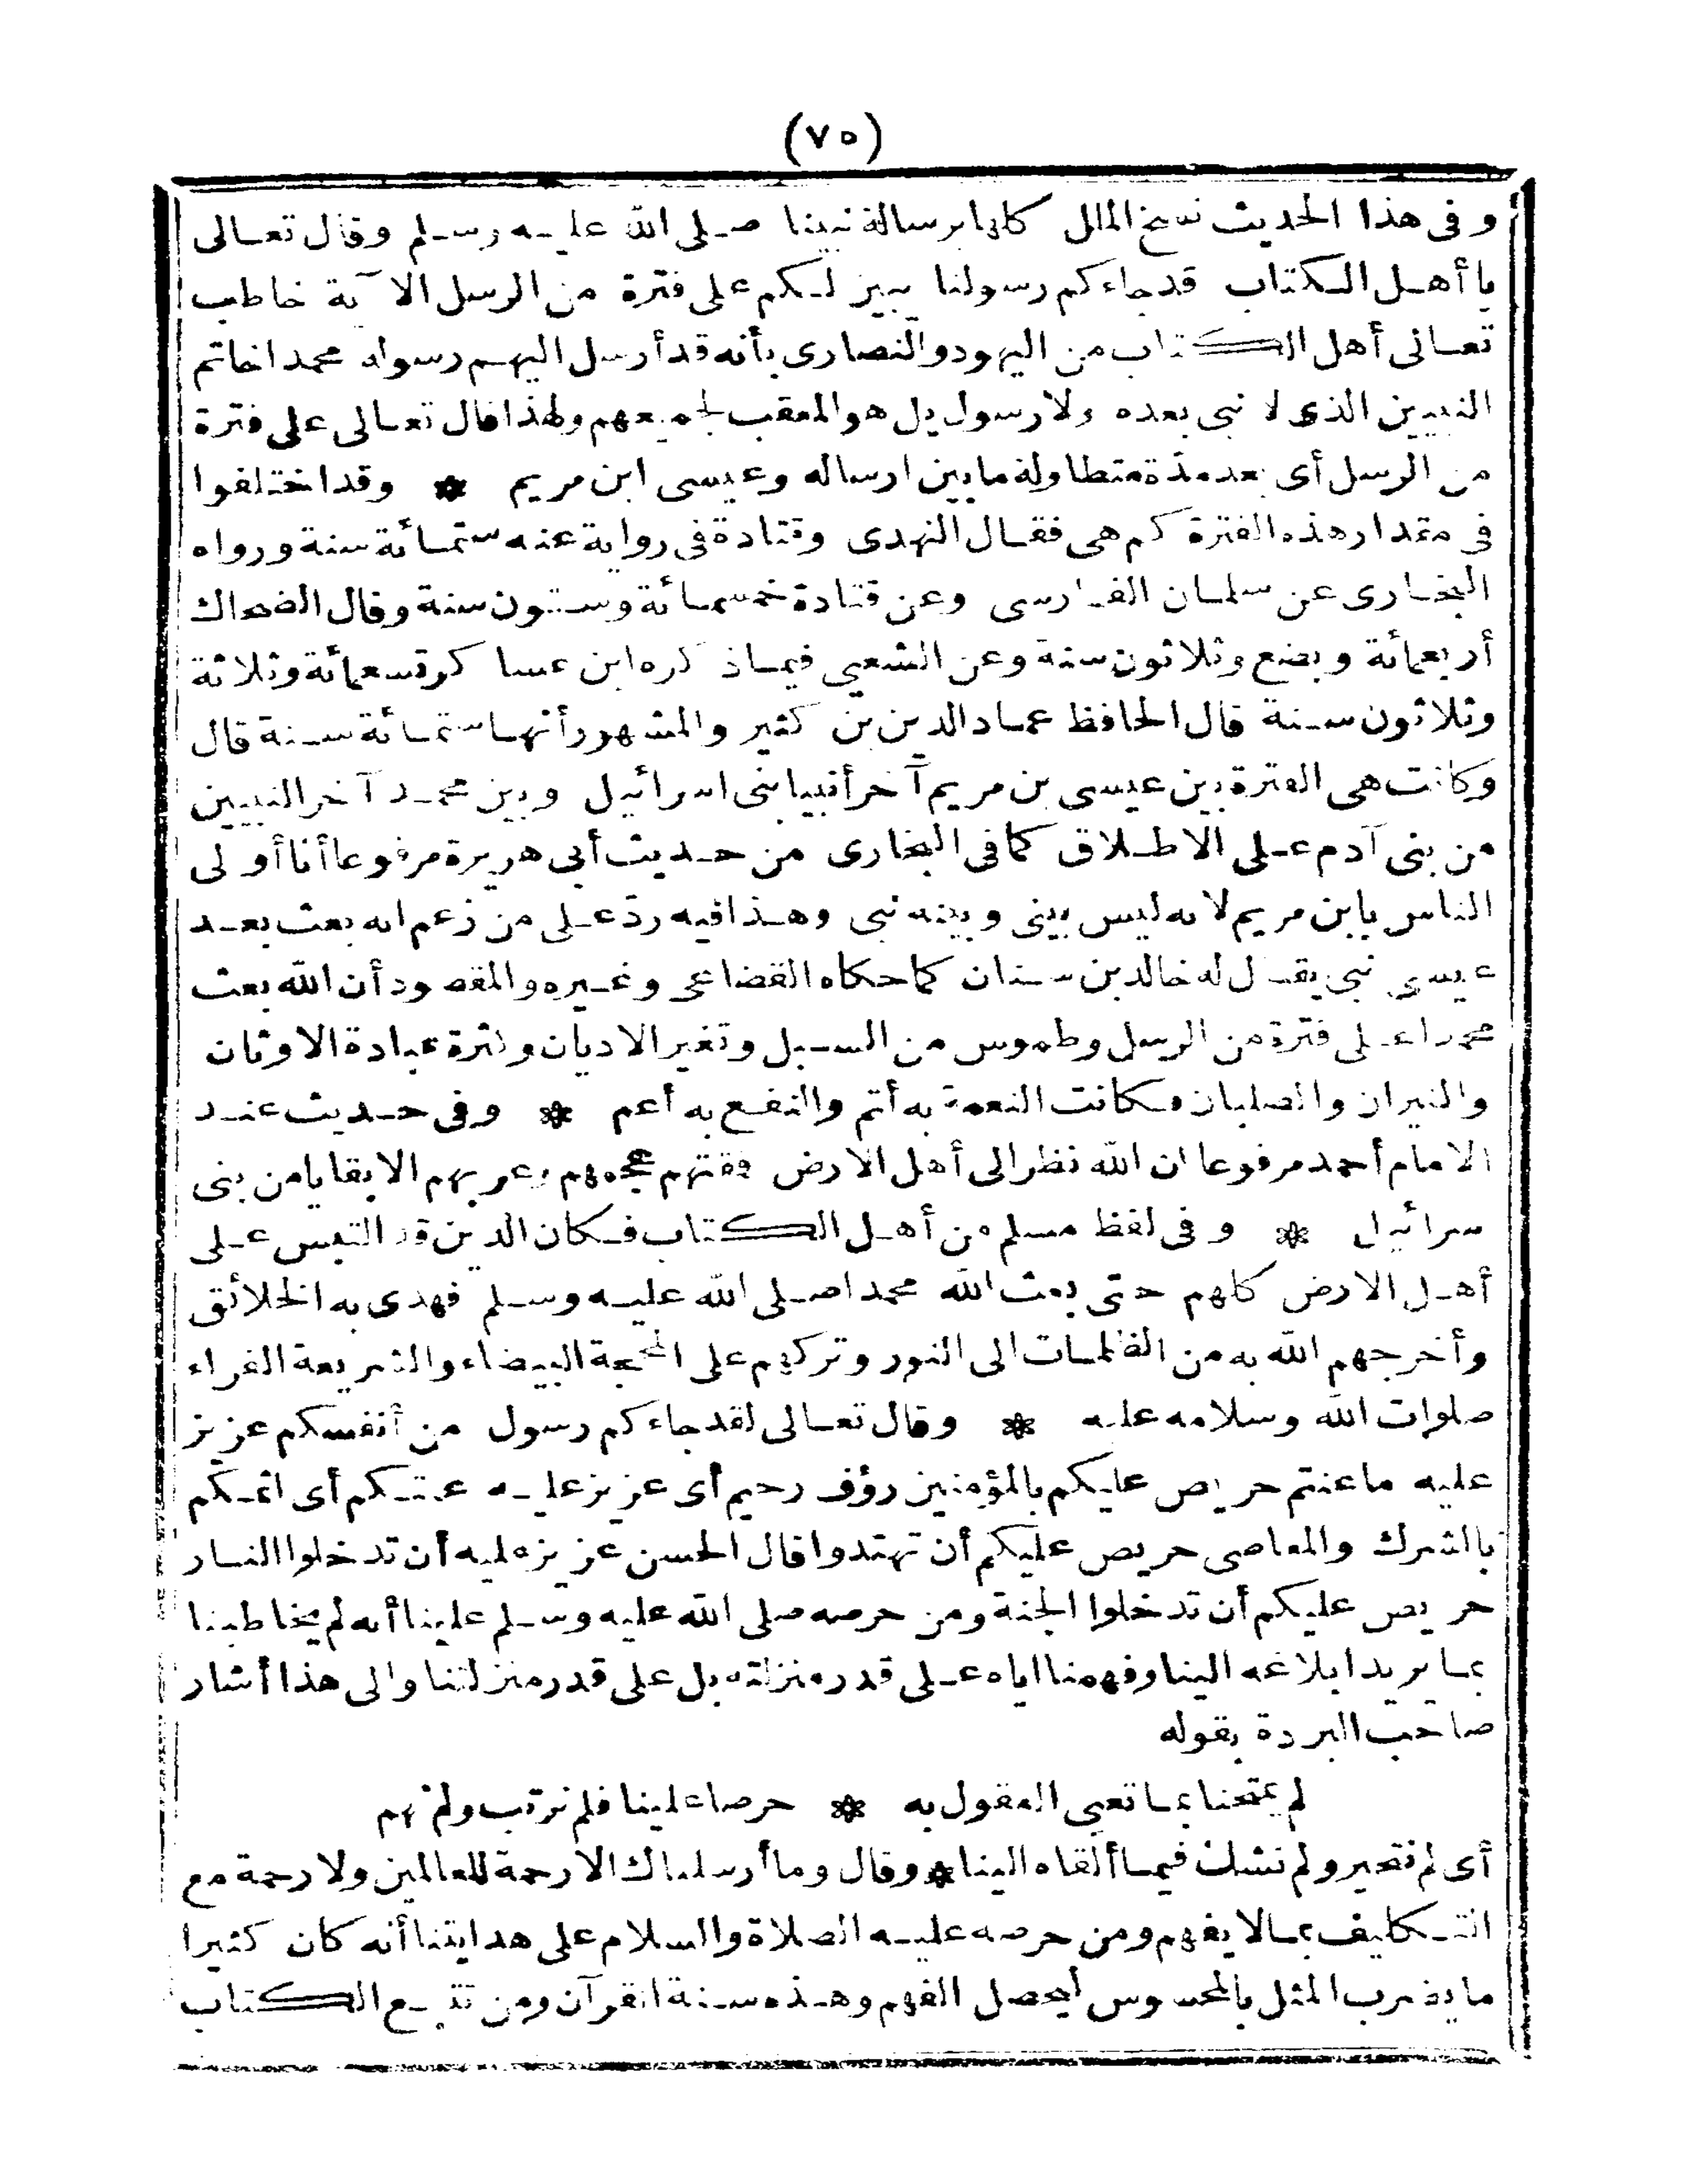 (٧٥)
وفى هذا الحديث نسخ الملل كلها برسالة نبينا صلى الله عليه وسلم وقال تعالى
يا أهل الكتاب قد جاءكم رسولنا يبين لكم على فترة من الرسل الآية خاطب
تعالى أهل الكتاب من اليهود والنصارى بأنه قد أرسل اليهم رسوله محمدا خاتم
النبيين الذى لا نبى بعده ولا رسول بل هو المعقب لجميعهم ولهذا قال تعالى على فترة
من الرسل أى بعد مدّة متطاولة ما بين ارساله وعيسى ابن مريم * وقد اختلفوا
فى مقدار هذه الفترة كم هى فقال النهدى وقتادة فى رواية عنه ستمائة سنة ورواه
البخارى عن سلمان الفارسى وعن قتادة خمسمائة وستون سنة وقال الضحاك
أربعمائة وبضع وثلاثون سنة وعن الشعبى فيما ذكره ابن عساكر تسعمائة وثلاثة
وثلاثون سنة قال الحافظ عماد الدين بن كثير والمشهور أنها ستمائة سنة قال
وكانت هى الفترة بين عيسى بن مريم آخر أنبيا بنى اسرائيل وبين محمد آخر النبيين
من بنى آدم على الاطلاق كما فى البخارى من حديث أبى هريرة مرفوعا أنا أولى
الناس بابن مريم لانه ليس بينى وبينه نبى وهذا فيه ردّ على من زعم انه بعث بعد
عيسى نبى يقال له خالد بن سنان كما حكاه القضاعى وغيره والمقصود أن الله بعث
محمدا على فترة من الرسل وطموس من السبل وتغير الاديان وكثرة عبادة الاوثان
والنيران والصلبان فكانت النعمة به أتم والنفع به أعم * وفى حديث عند
الامام أحمد مرفوعا ان الله نظر الى أهل الارض فمقتهم عجمهم وعربهم الا بقايا من بنى
سرائيل * وفى لفظ مسلم من أهل الكتاب فكان الدين قد التبس على
أهل الارض كلهم حتى بعث الله محمدا صلى الله عليه وسلم فهدى به الخلائق
وأخرجهم الله به من الظلمات الى النور وتركهم على المحجة البيضاء والشريعة الغراء
صلوات الله وسلامه عليه * وقال تعالى لقد جاءكم رسول من أنفسكم عزيز
عليه ما عنتم حريص عليكم بالمؤمنين رؤف رحيم أى عزيز عليه عنتكم أى اثمكم
بالشرك والمعاصى حريص عليكم أن تهتدوا قال الحسن عزيز عليه أن تدخلوا النار
حريص عليكم أن تدخلوا الجنة ومن حرصه صلى الله عليه وسلم علينا أنه لم يخاطبنا
بما يريد ابلاغه الينا وفهمنا اياه على قدر منزلته بل على قدر منزلتنا والى هذا أشار
صاحب البردة بقوله
لم يمتحنا بما تعيى العقول به * حرصا علينا فلم نرتب ولم نهم
أى لم نتحير ولم نشك فيما ألقاه الينا * وقال وما أرسلناك الا رحمة للعالمين ولا رحمة مع
التكليف بما لا يفهم ومن حرصه عليه الصلاة والسلام على هدايتنا أنه كان كثيرا
ما يضرب المثل بالمحسوس ليحصل الفهم وهذه سنة القرآن ومن تتبع الكتاب